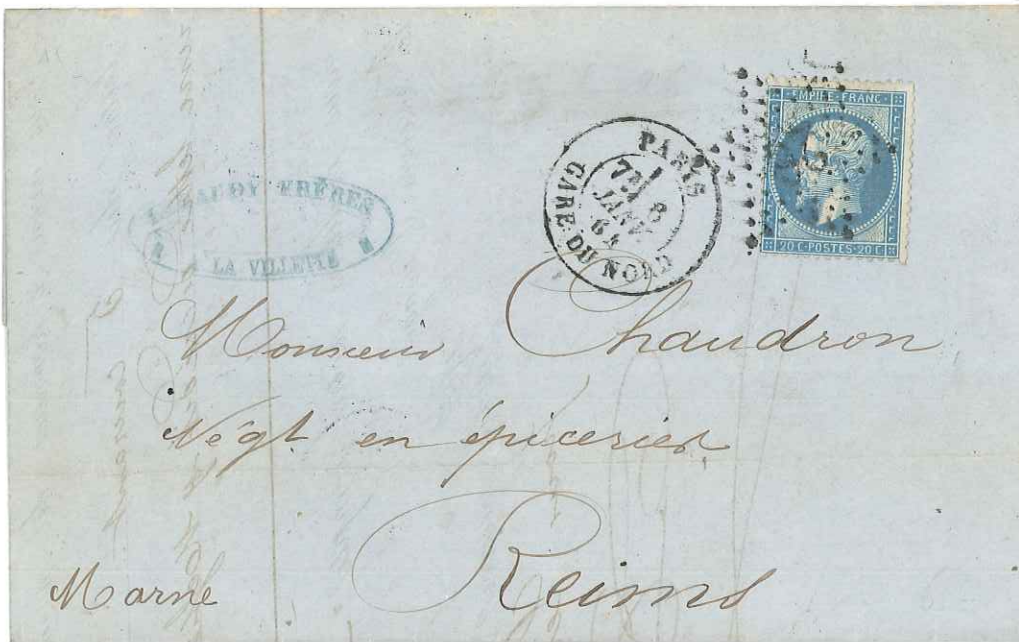 EMPIRE FRANC
20 C · POSTES · 20 C
PARIS
8
JANV
64
GARE DU NORD
FRÈRES
LA VILLETTE
Monsieur Chaudron
Négt en épiceries
Reims
Marne